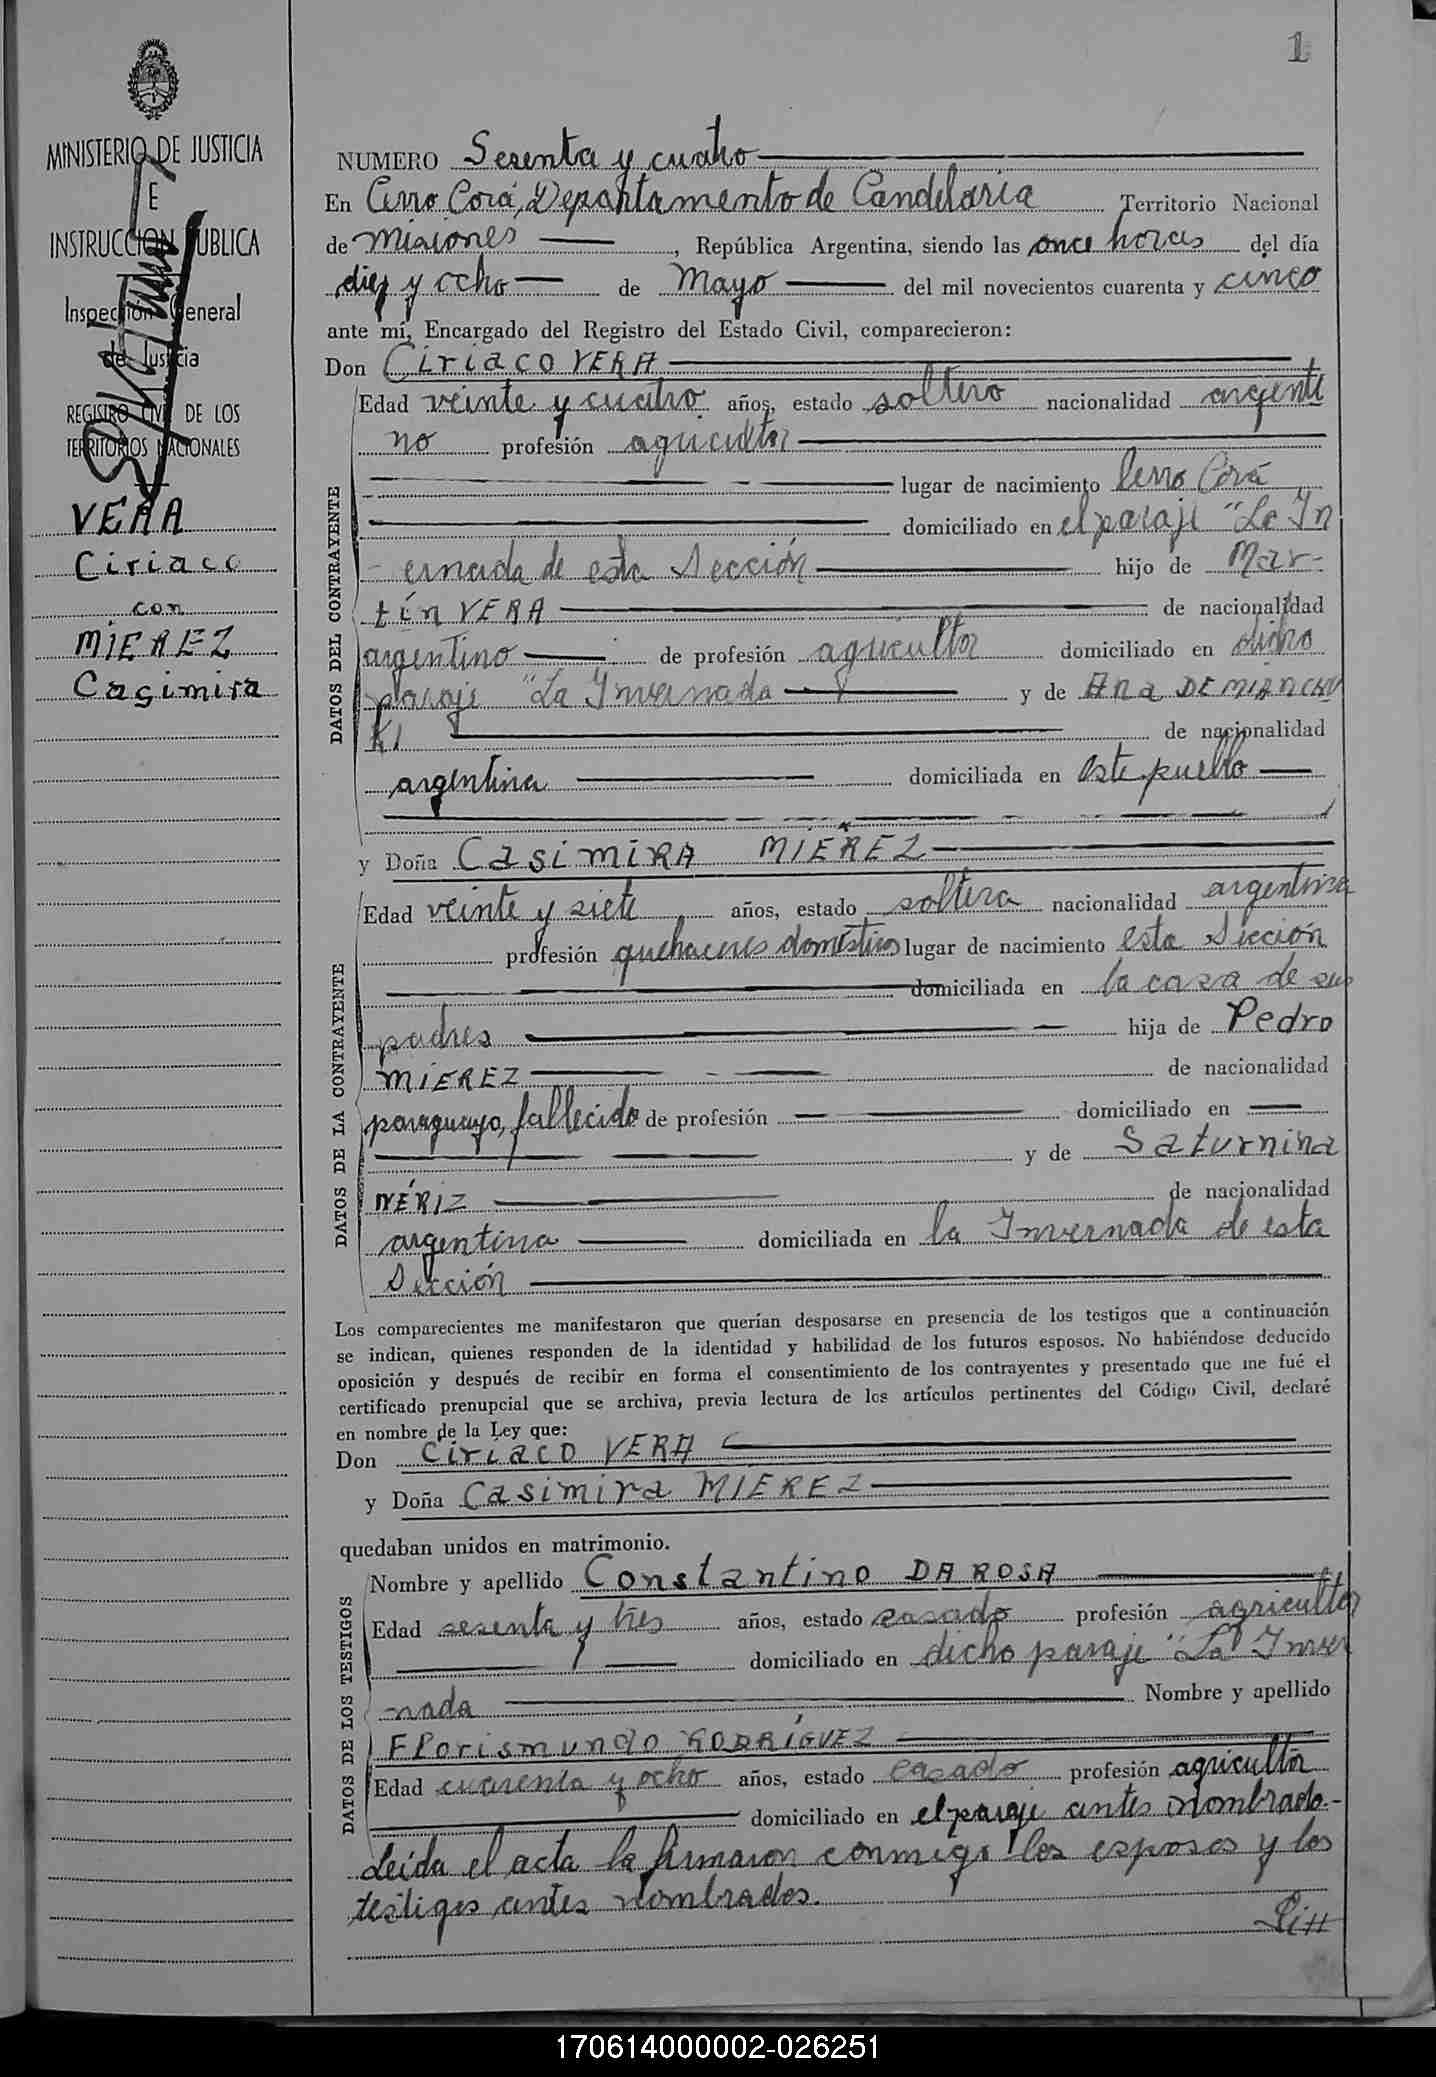 1
MINISTERIO DE JUSTICIA
E
INSTRUCCION PUBLICA
Inspección General
de Justicia
REGISTRO CIVIL DE LOS
TERRITORIOS NACIONALES
VERA
Ciriaco
con
MIEREZ
Casimira
NUMERO Sesenta y cuatro
En Cerro Corá, Departamento de Candelaria Territorio Nacional
de Misiones, República Argentina, siendo las once horas del día
diez y ocho de Mayo del mil novecientos cuarenta y cinco
ante mí, Encargado del Registro del Estado Civil, comparecieron:
Don Ciriaco VERA
DATOS DEL CONTRAYENTE
Edad veinte y cuatro años, estado soltero nacionalidad argenti
no profesión agricultor
lugar de nacimiento Cerro Corá
domiciliado en el paraje "La In
ernada de esta Sección hijo de Mar-
tín VERA de nacionalidad
argentino de profesión agricultor domiciliado en dicho
paraje "La Invernada y de Ana DEMIANCHU
KI de nacionalidad
argentina domiciliada en este pueblo
y Doña Casimira MIÉREZ
DATOS DE LA CONTRAYENTE
Edad veinte y siete años, estado soltera nacionalidad argentina
profesión quehaceres domésticos lugar de nacimiento esta Sección
domiciliada en la casa de sus
padres hija de Pedro
MIEREZ de nacionalidad
paraguayo, fallecido de profesión domiciliado en
y de Saturnina
NÉRIZ de nacionalidad
argentina domiciliada en la Invernada de esta
Sección
Los comparecientes me manifestaron que querían desposarse en presencia de los testigos que a continuación
se indican, quienes responden de la identidad y habilidad de los futuros esposos. No habiéndose deducido
oposición y después de recibir en forma el consentimiento de los contrayentes y presentado que me fué el
certificado prenupcial que se archiva, previa lectura de los artículos pertinentes del Código Civil, declaré
en nombre de la Ley que:
Don Ciriaco VERA
y Doña Casimira MIEREZ
quedaban unidos en matrimonio.
DATOS DE LOS TESTIGOS
Nombre y apellido Constantino DA ROSA
Edad sesenta y tres años, estado casado profesión agricultor
domiciliado en dicho paraje "La Inver
nada Nombre y apellido
Florismundo RODRÍGUEZ
Edad cuarenta y ocho años, estado casado profesión agricultor
domiciliado en el paraje antes nombrado.-
Leída el acta la firmaron conmigo los esposos y los
testigos antes nombrados.
170614000002-026251